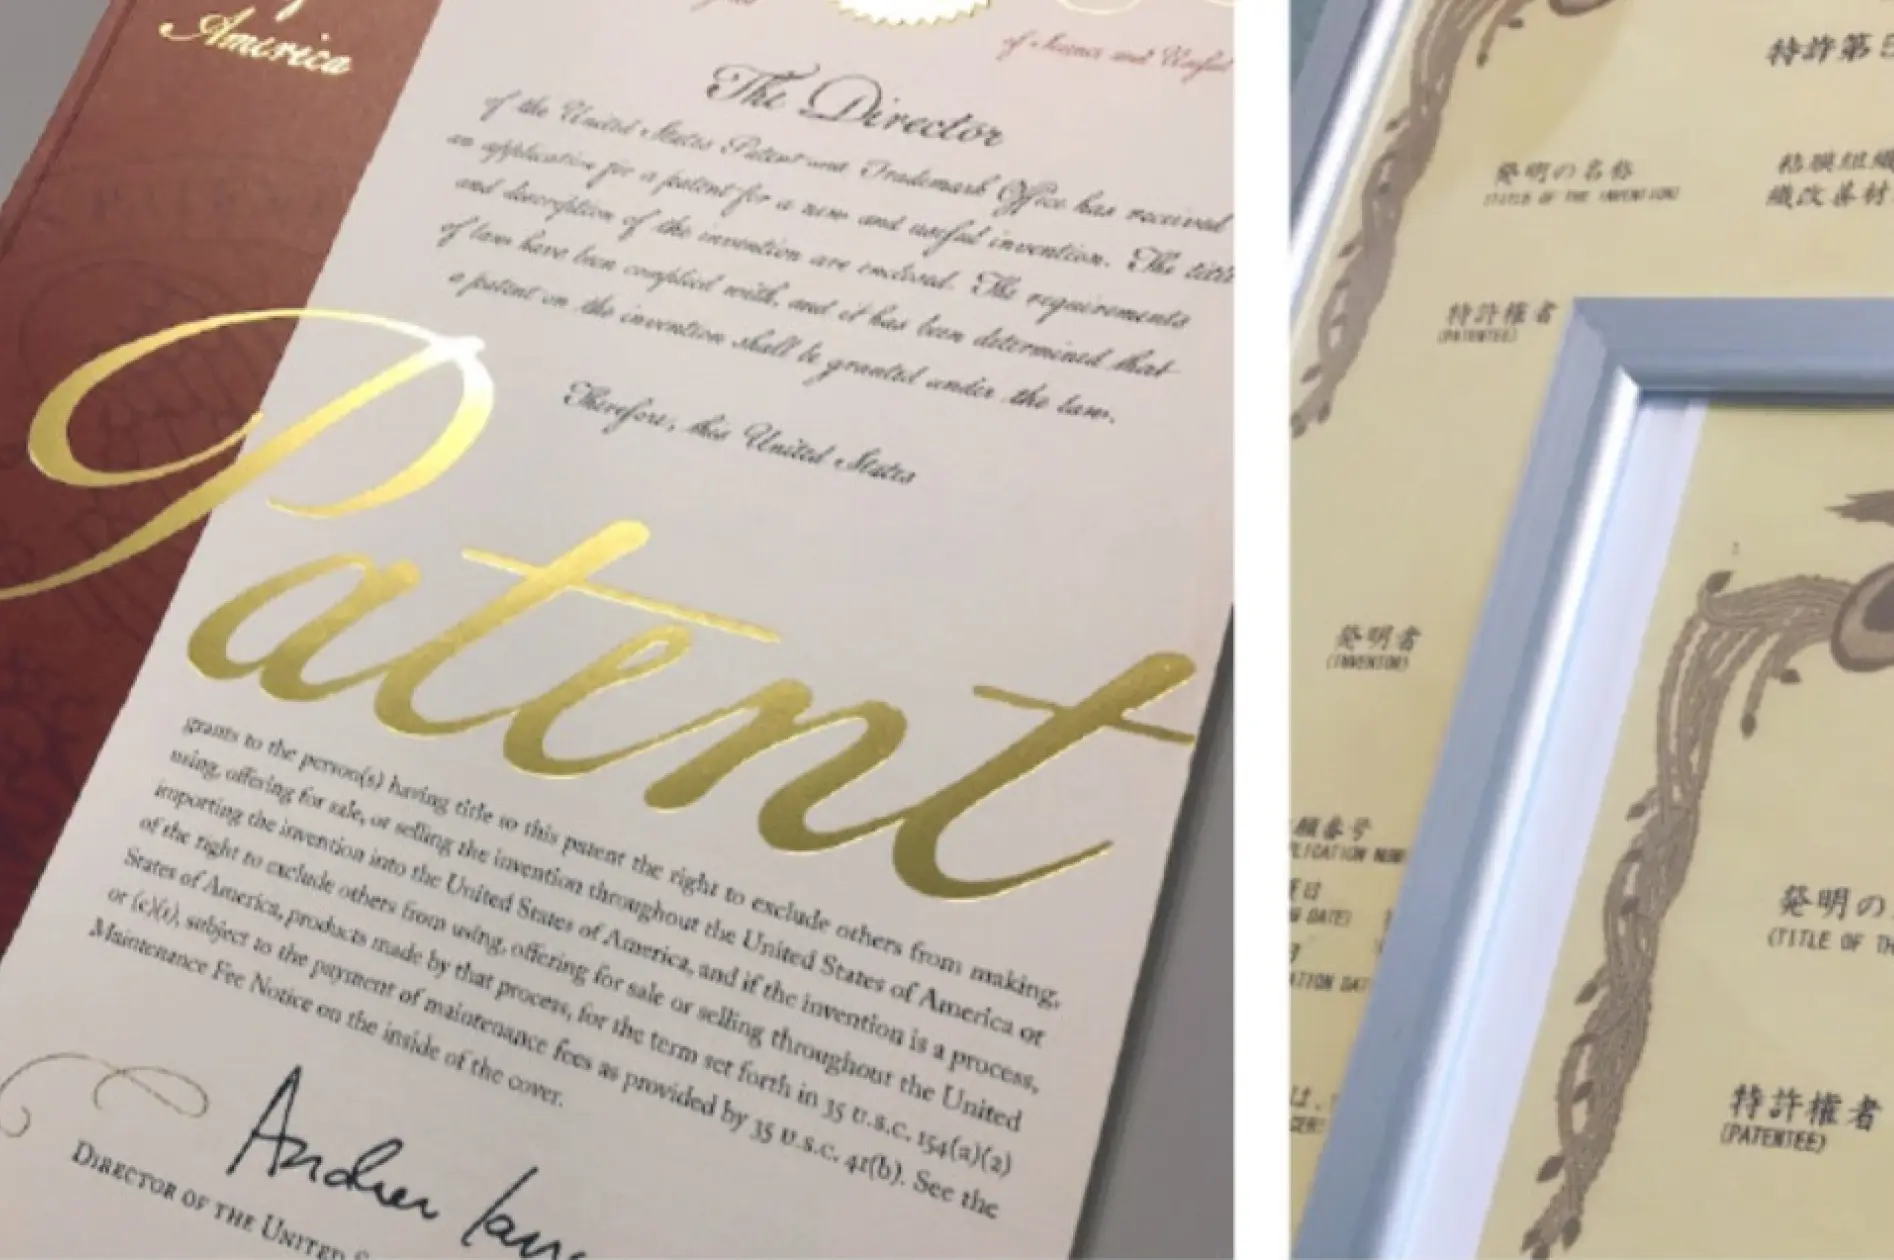 America
of Science and Useful
The Director
of the United States Patent and Trademark Office has received
an application for a patent for a new and useful invention. The title
and description of the invention are enclosed. The requirements
of law have been complied with, and it has been determined that
a patent on the invention shall be granted under the law.
Therefore, this United States
Patent
grants to the person(s) having title to this patent the right to exclude others from making,
using, offering for sale, or selling the invention throughout the United States of America or
importing the invention into the United States of America, and if the invention is a process,
of the right to exclude others from using, offering for sale or selling throughout the United
States of America, products made by that process, for the term set forth in 35 U.S.C. 154(a)(2)
or (c)(1), subject to the payment of maintenance fees as provided by 35 U.S.C. 41(b). See the
Maintenance Fee Notice on the inside of the cover.
Andrei Iancu
DIRECTOR OF THE UNITED S
特許第5
発明の名称
(TITLE OF THE INVENTION)
粘膜組織
織改善材
特許権者
(PATENTEE)
発明者
(INVENTOR)
願番号
PLICATION NUMB
日
NG DATE)
ATION DAT
発明の
(TITLE OF TH
特許権者
(PATENTEE)